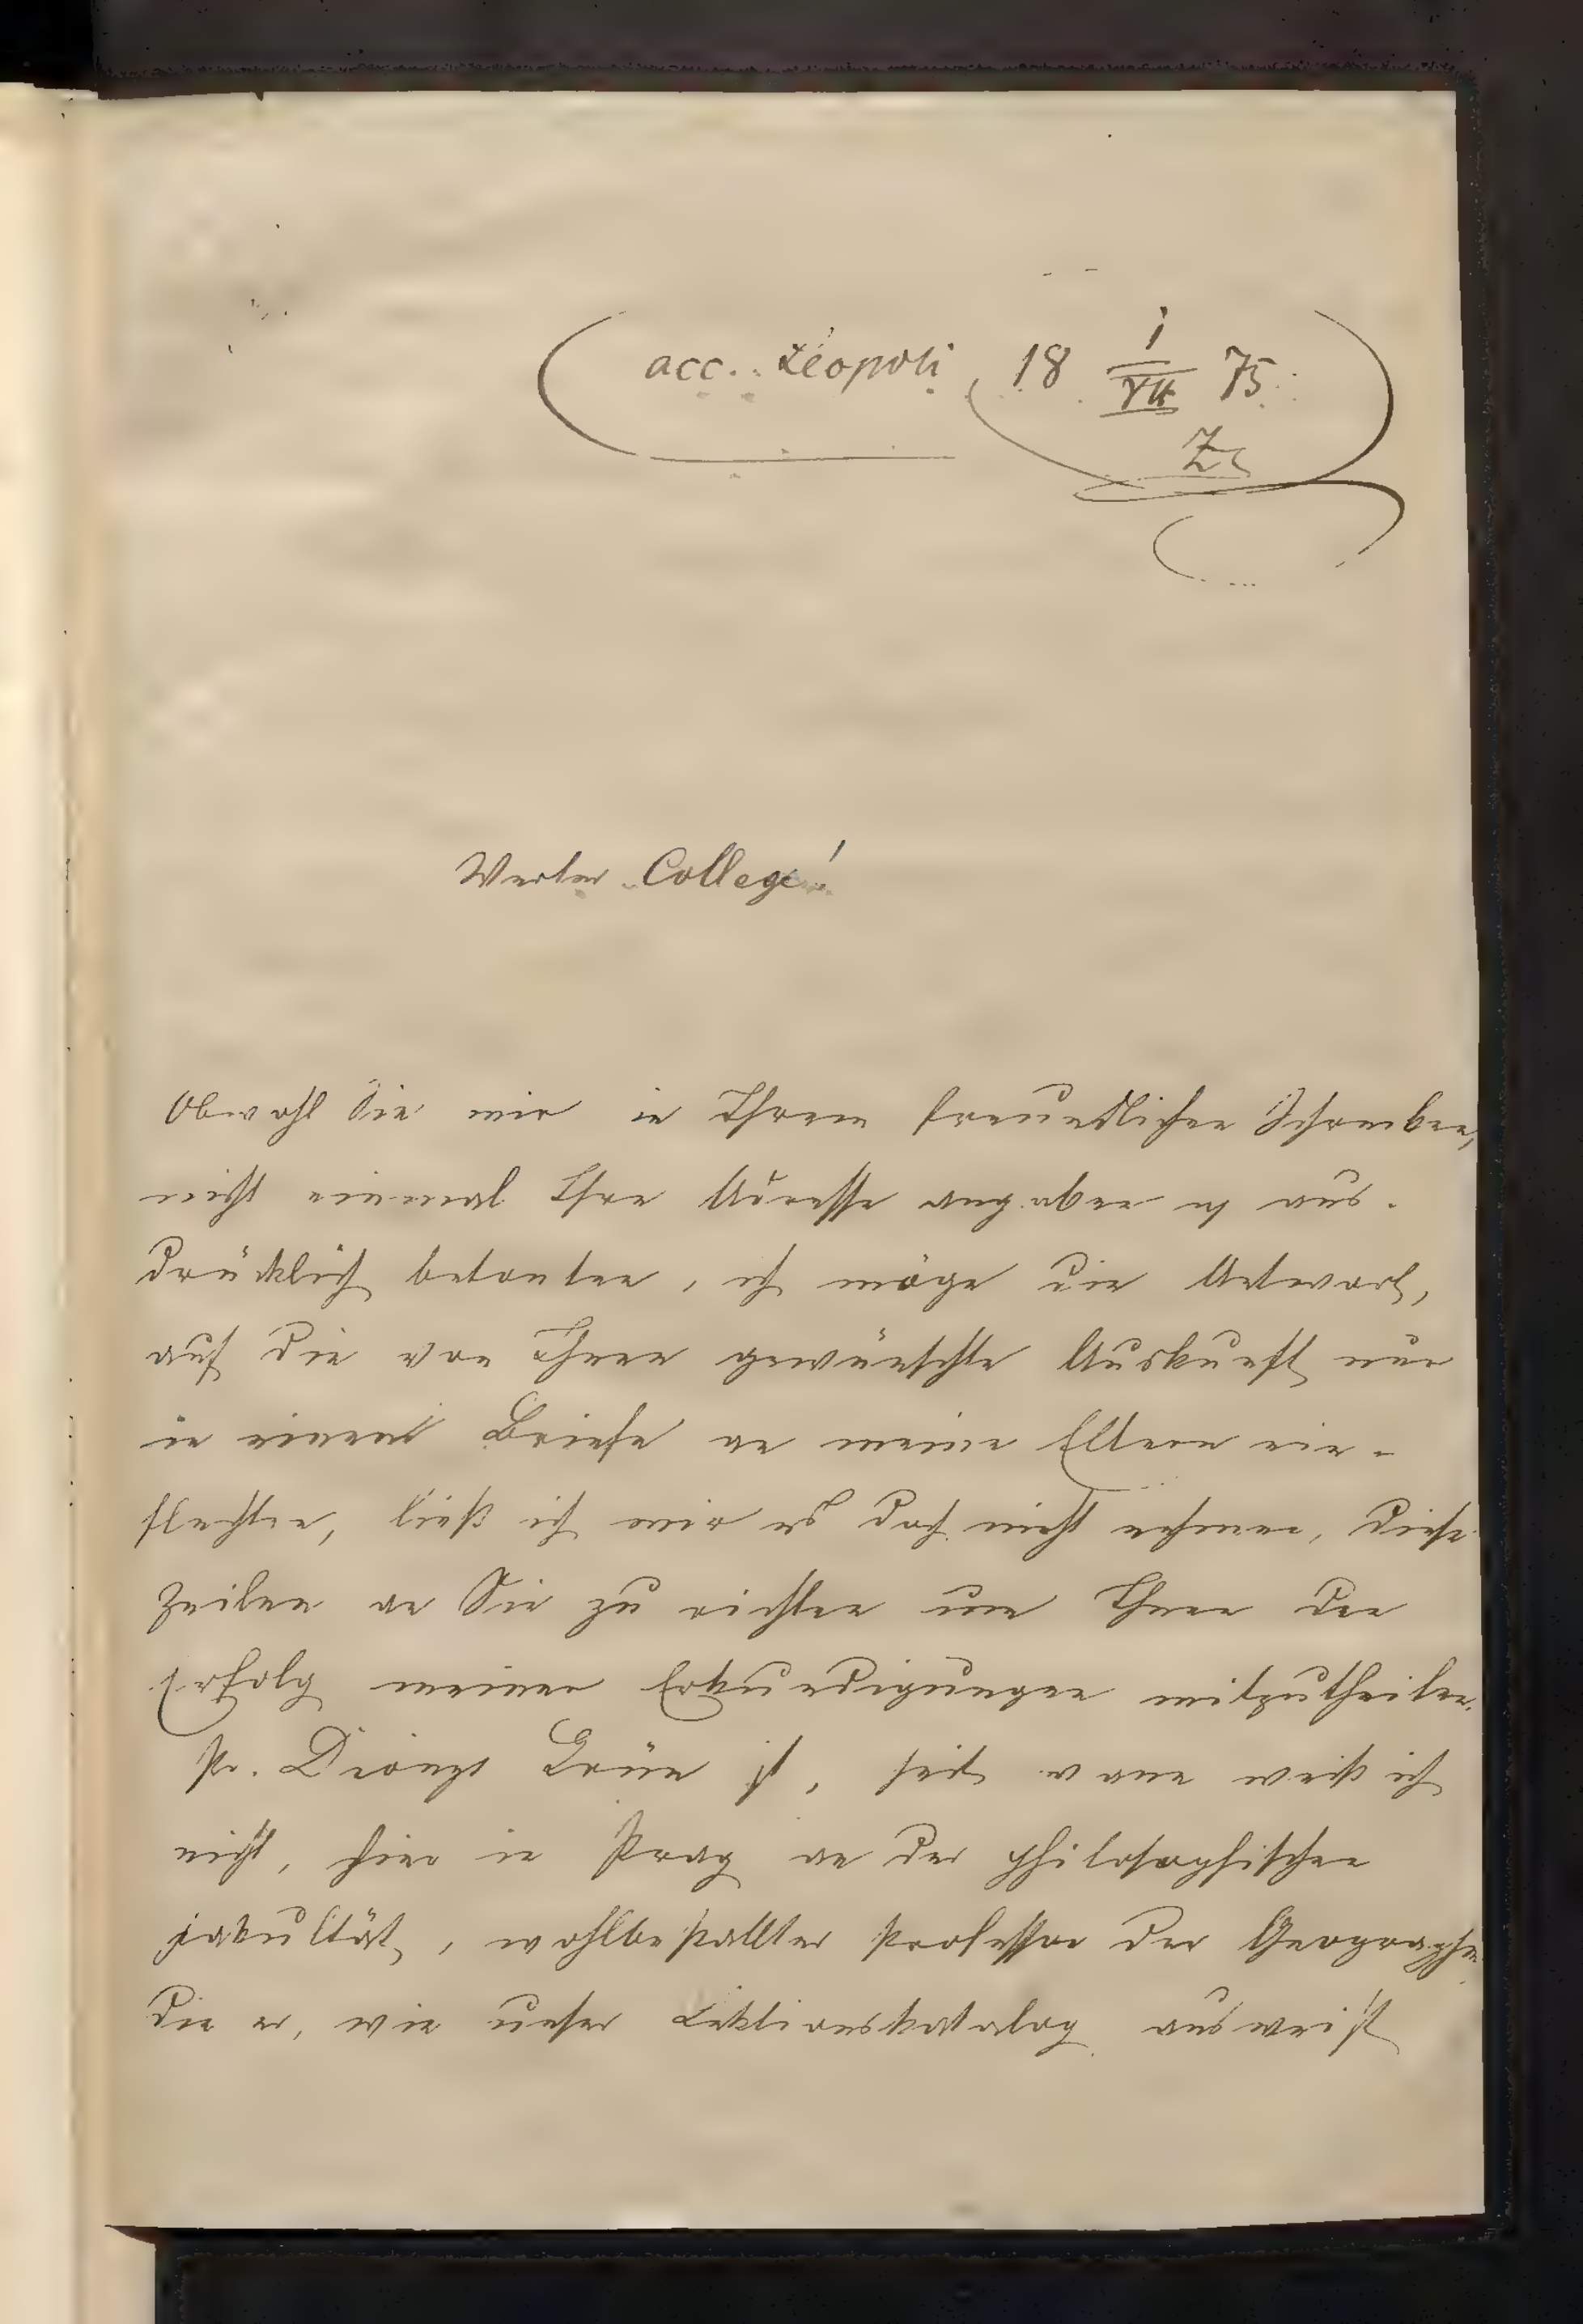 acc. Leopoli 18 1/VII 75
Werter College!
Obwohl Sie mir in Ihrem freundlichen Schreiben,
nicht einmal Ihre Adresse angaben u aus-
drücklich betonten, ich möge die Antwort,
auf die von Ihnen gewünschte Auskunft nur
in einem Briefe an meine Eltern ein-
flechten, ließ ich mir es doch nicht nehmen, diese
Zeilen an Sie zu richten um Ihnen den
Erfolg meiner Erkundigungen mitzutheilen.
Dionys Grün ist, seit wann weiß ich
nicht, hier in Prag an der philosophischen
Fakultät, wohlbestallter Professor der Geographie
die er, wie unser Lektionskatalog ausweist